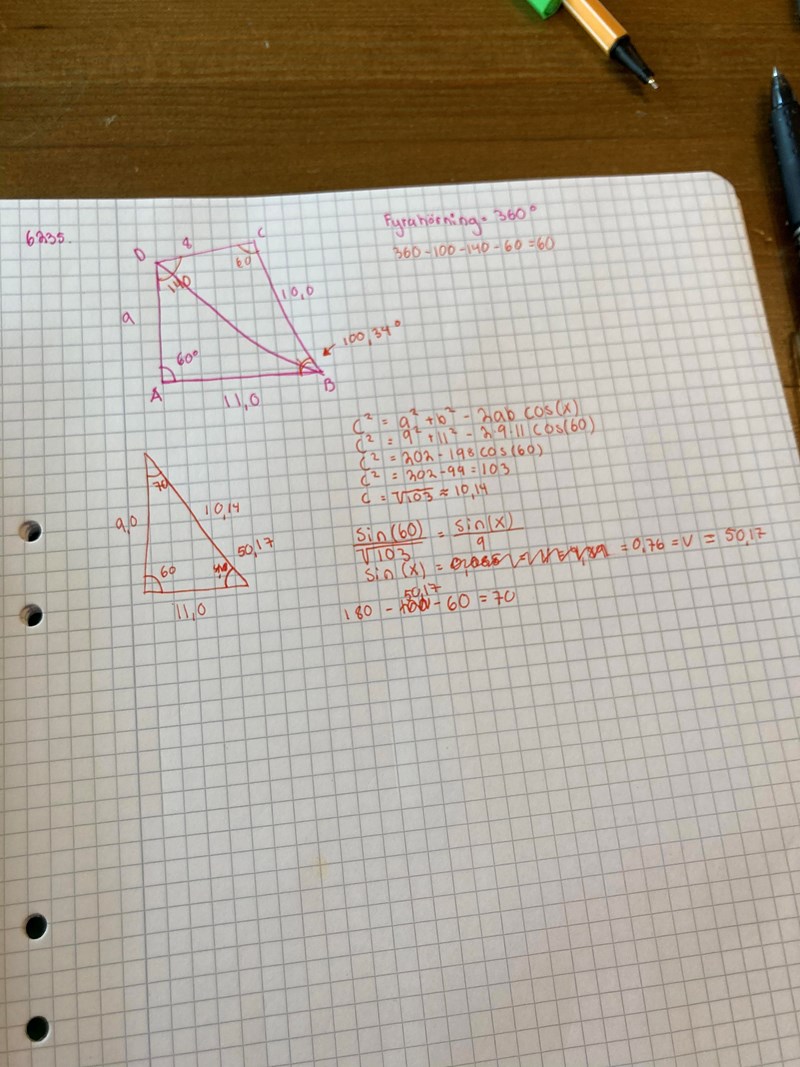 6235.
Fyrahörning = 360°
360-100-140-60=60
D
8
C
60
140
10,0
9
60°
100,34°
A
11,0
B
C² = a² + b² - 2ab cos(x)
C² = 9² + 11² - 2·9·11 cos(60)
C² = 202 - 198 cos(60)
C² = 202 - 99 = 103
C = √103 ≈ 10,14
70
9,0
10,14
50,17
60
11,0
sin(60)/√103 = sin(x)/9
sin(x) = = 0,76 = v = 50,17
180 - 50,17 - 60 = 70